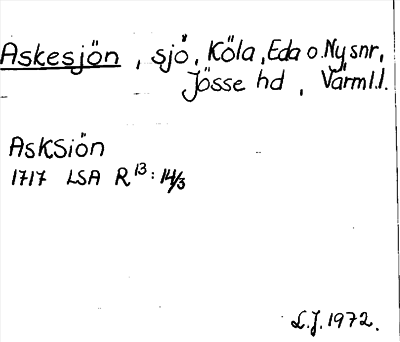 Askesjön, sjö, Köla, Eda o. Ny snr,
Jösse hd, Värml.l.
AskSiön
1717 LSA R 13:14/3
L.J. 1972.